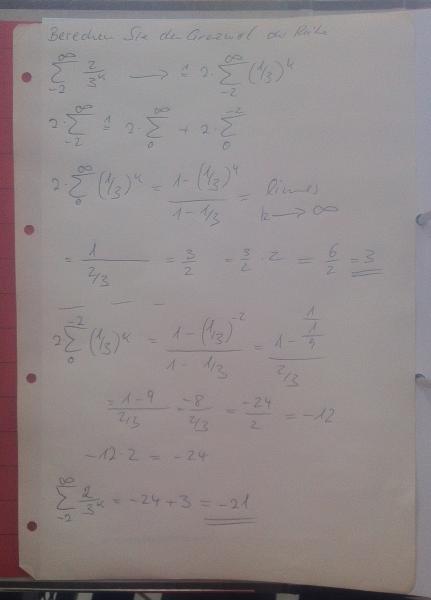 Berechnen Sie den Grenzwert der Reihe
∞ ∑ -2 2/3^k ⟶ ≙ 2·∑_{-2}^{∞} (1/3)^k
2·∑_{-2}^{∞} ≙ 2·∑_{0}^{∞} + 2·∑_{0}^{-2}
2·∑_{0}^{∞} (1/3)^k = (1-(1/3)^k)/(1-1/3) = limes k⟶∞
= 1/(2/3) = 3/2 = 3/2 · 2 = 6/2 = 3
2∑_{0}^{-2} (1/3)^k = (1-(1/3)^{-2})/(1-1/3) = (1-1/(1/9))/(2/3)
= (1-9)/(2/3) = -8/(2/3) = -24/2 = -12
-12·2 = -24
∑_{-2}^{∞} 2/3^k = -24+3 = -21